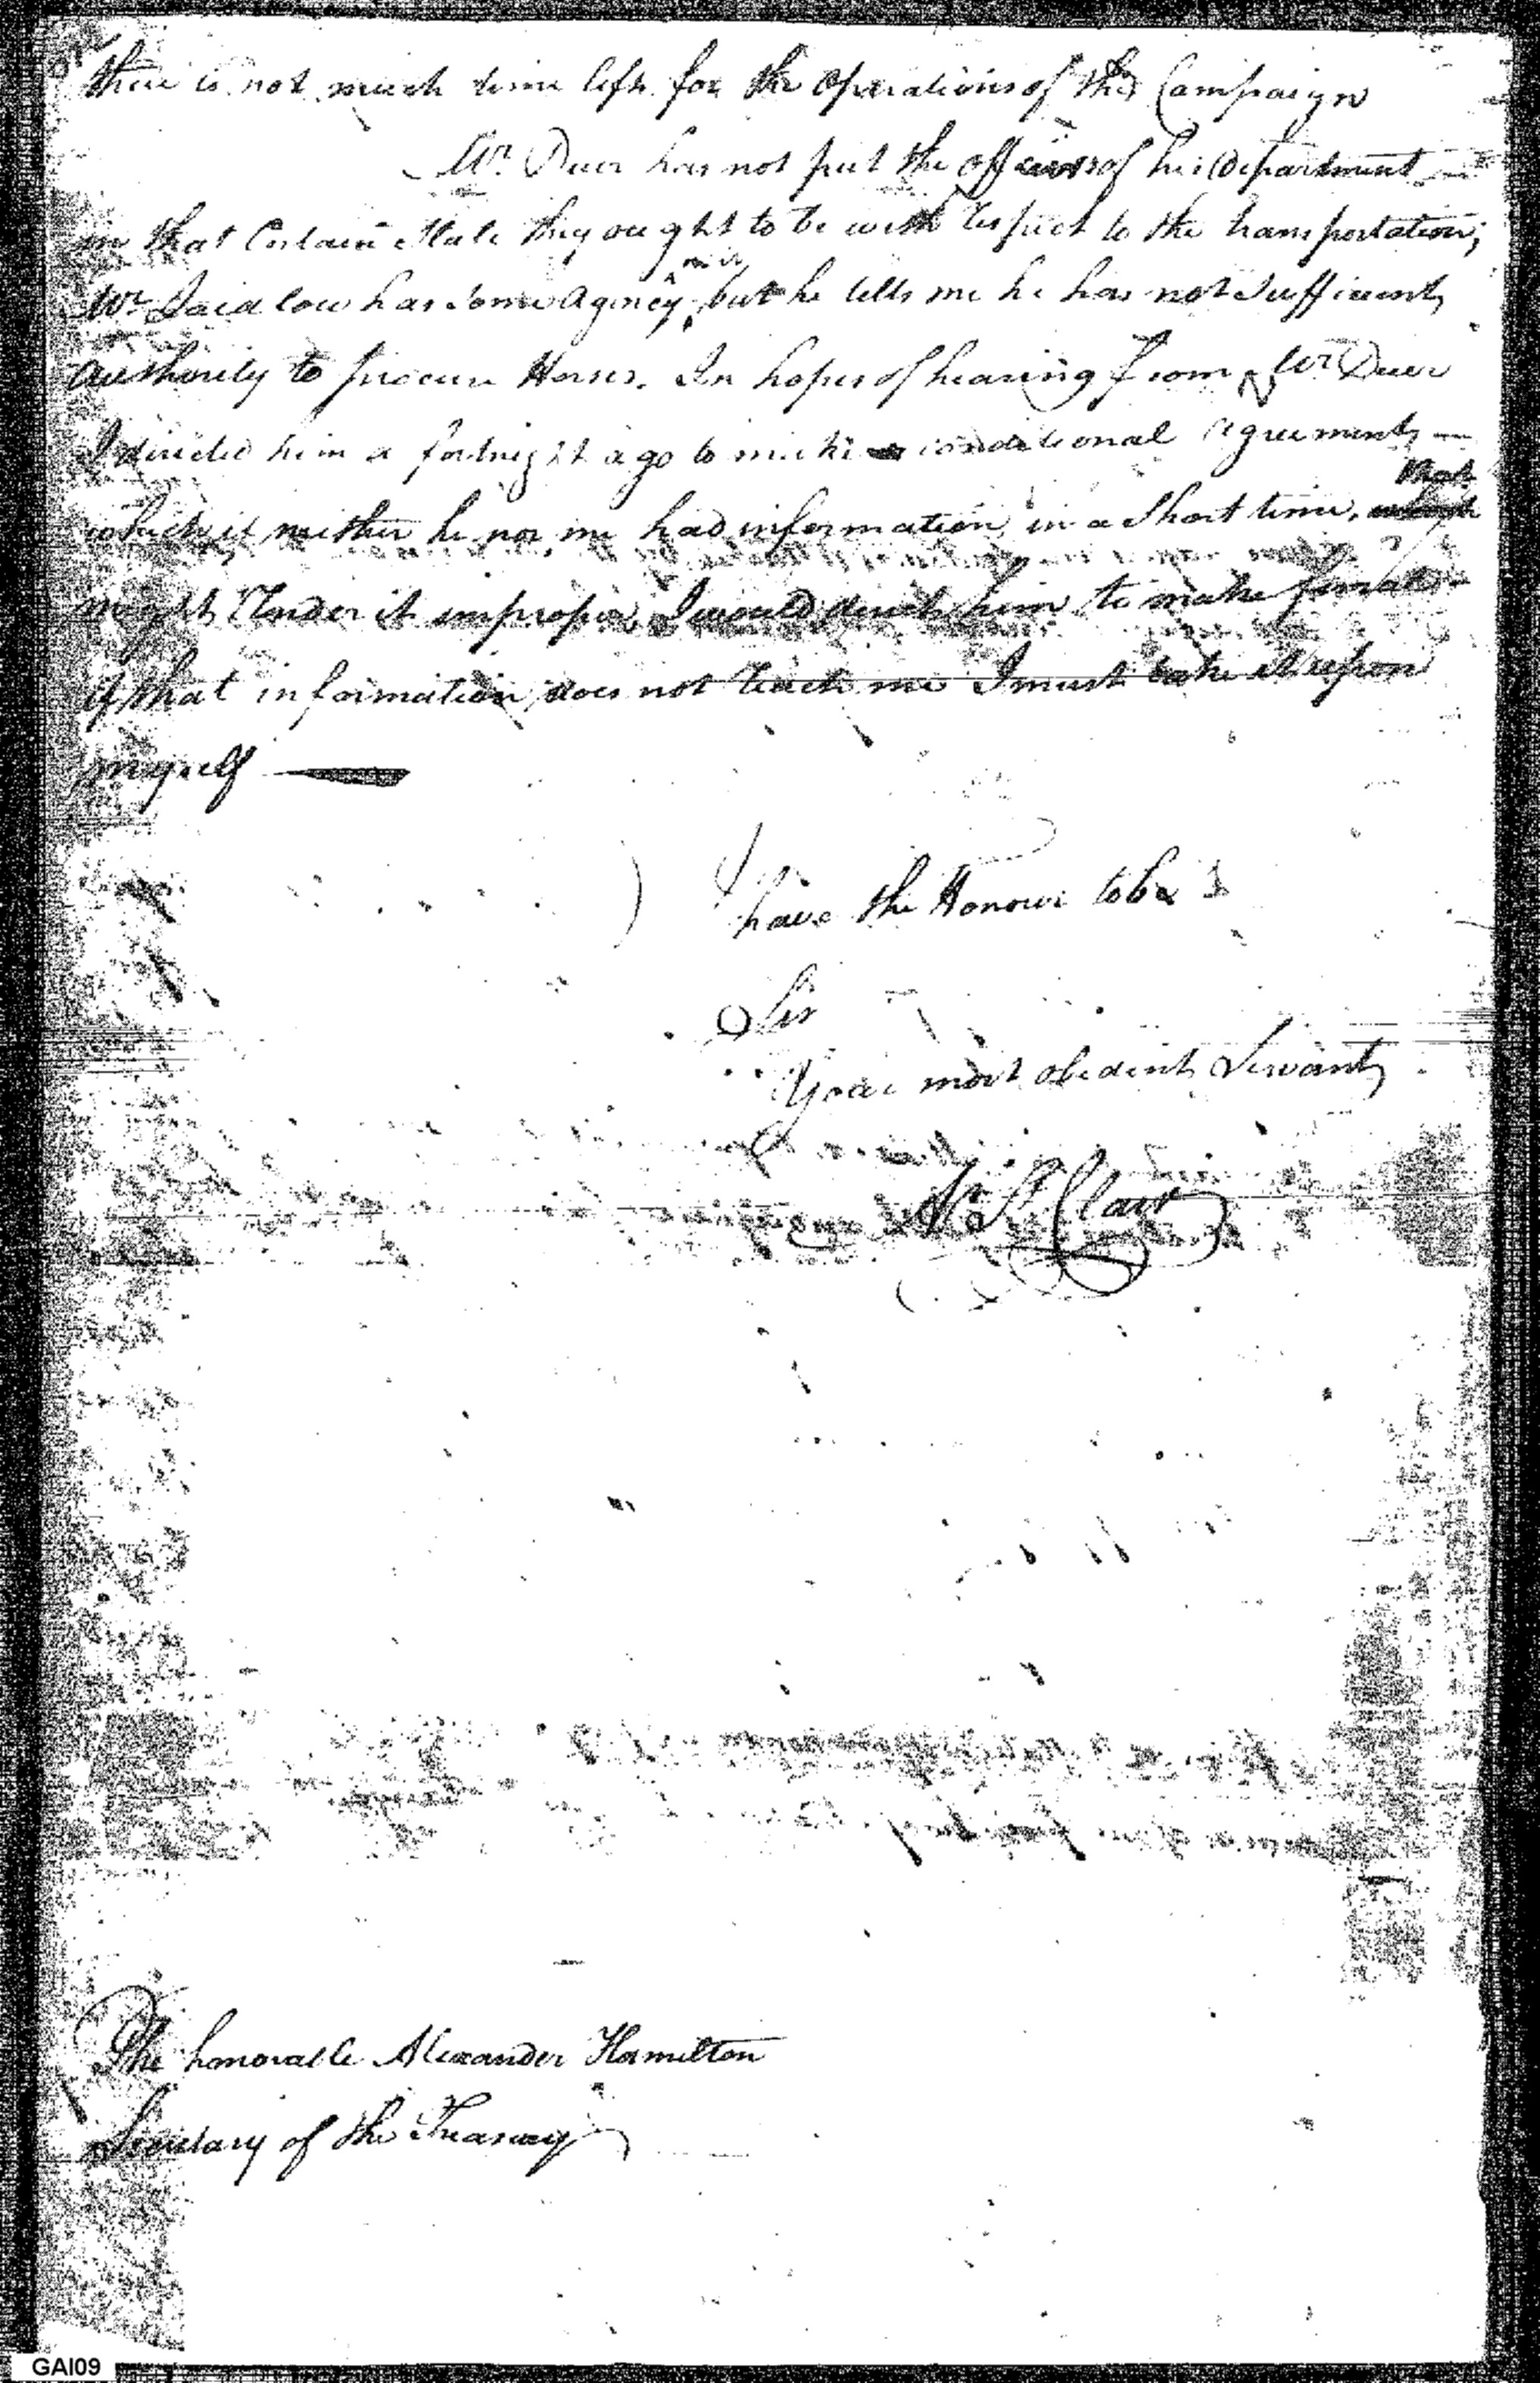 there is not much time left for the Operations of the Campaign
Mr. Duer has not put the officers of his Department
in that Certain State they ought to be with respect to the transportation;
Mr. Laidlow has some Agency in it, but he tells me he has not sufficient
authority to procure Horses. In hopes of hearing from Mr Duer
I directed him a fortnight ago to make conditional agreements —
which if neither he nor me had information in a short time, that
might render it improper, I would direct him to make
if that information does not reach me I must take it upon
myself —
I have the Honour to be
Sir
Your most obedient Servant
Ar. St. Clair
The honorable Alexander Hamilton
Secretary of the Treasury
GAI09